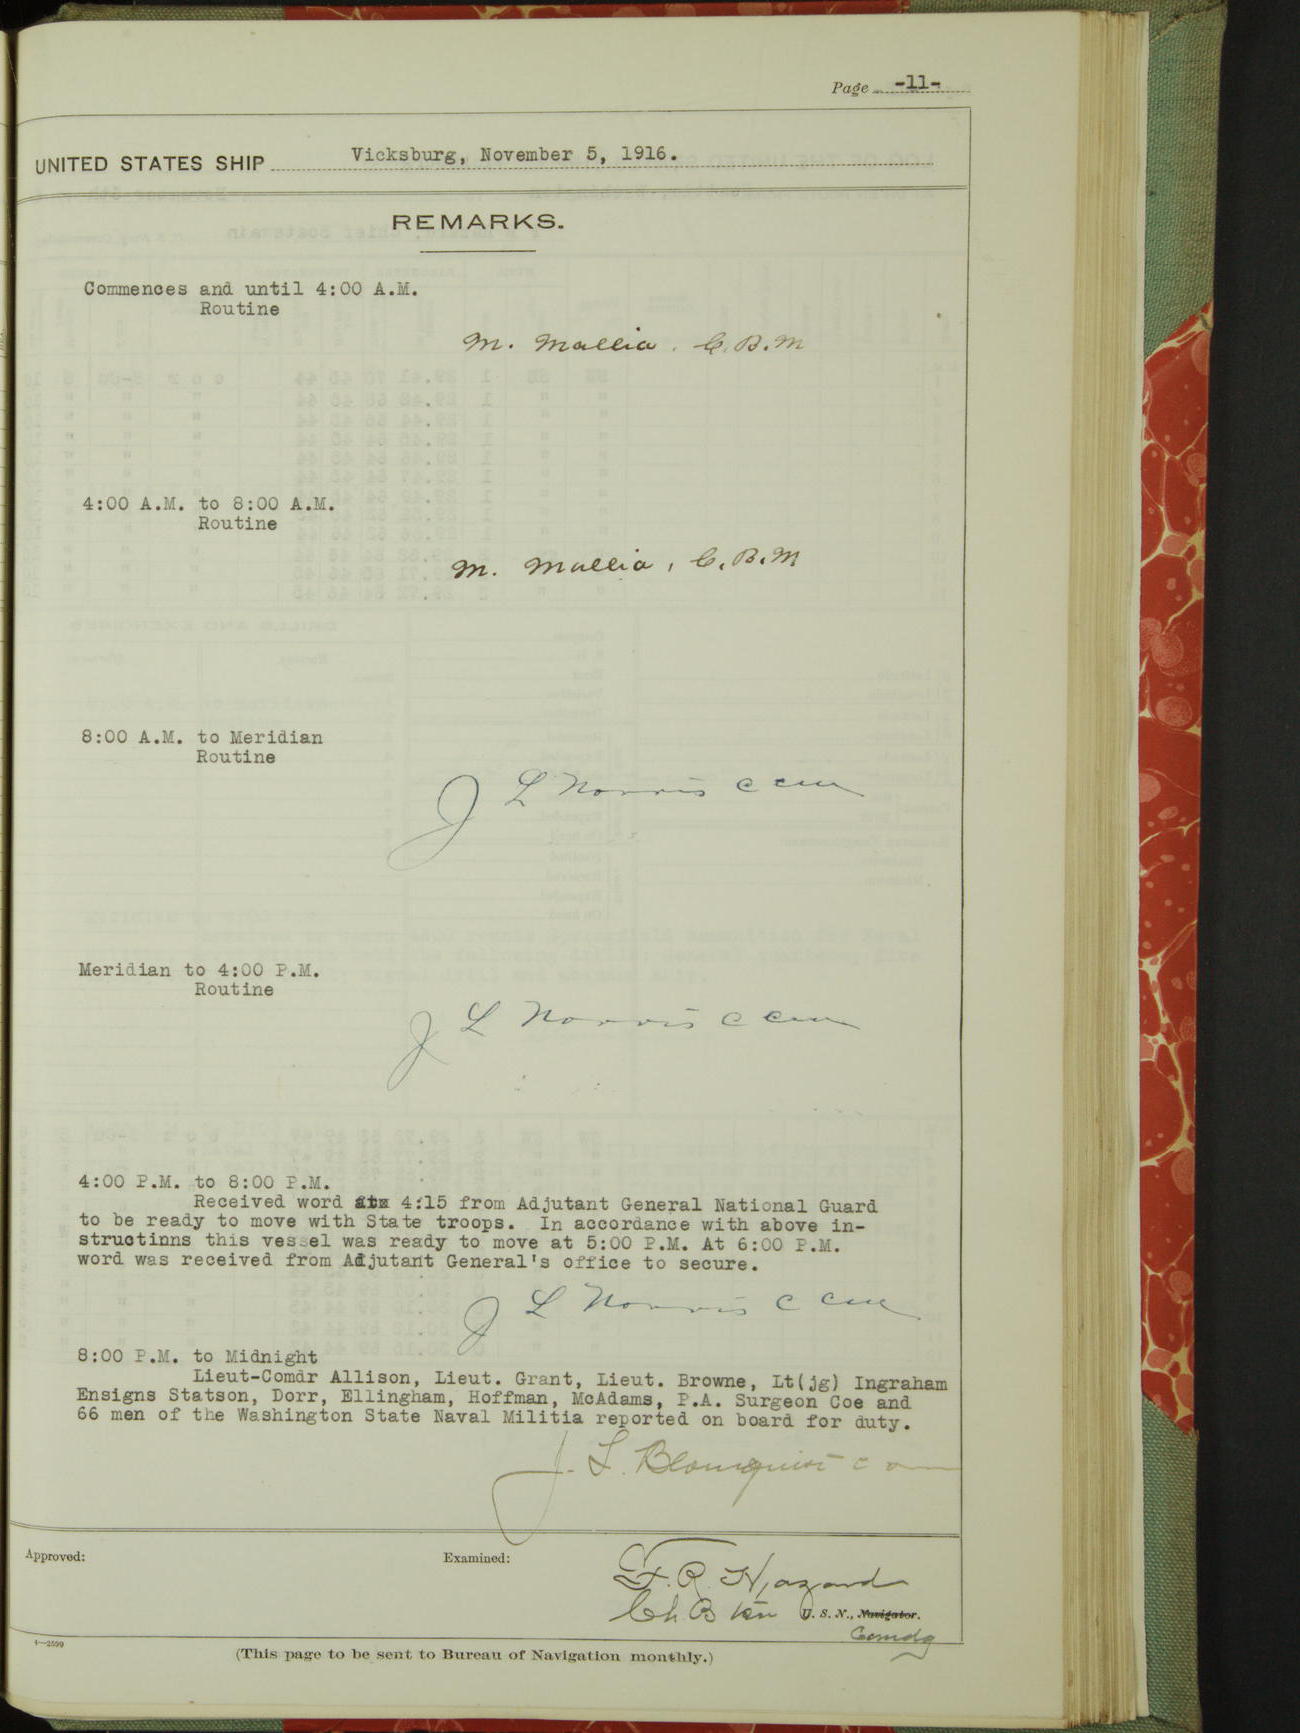 Page -11-
UNITED STATES SHIP Vicksburg, November 5, 1916.
REMARKS.
Commences and until 4:00 A.M.
Routine
M. Mallia. C.B.M
4:00 A.M. to 8:00 A.M.
Routine
M. Mallia, C.B.M
8:00 A.M. to Meridian
Routine
J L Norris C CM
Meridian to 4:00 P.M.
Routine
J L Norris C CM
4:00 P.M. to 8:00 P.M.
Received word at 4:15 from Adjutant General National Guard
to be ready to move with State troops. In accordance with above in-
structinns this vessel was ready to move at 5:00 P.M. At 6:00 P.M.
word was received from Adjutant General's office to secure.
J L Norris C CM
8:00 P.M. to Midnight
Lieut-Comdr Allison, Lieut. Grant, Lieut. Browne, Lt(jg) Ingraham
Ensigns Statson, Dorr, Ellingham, Hoffman, McAdams, P.A. Surgeon Coe and
66 men of the Washington State Naval Militia reported on board for duty.
J. L. Blomquist
Approved:
Examined:
F. R. Hazard
Ch B U. S. N., Navigator.
Comdg
4—2599
(This page to be sent to Bureau of Navigation monthly.)